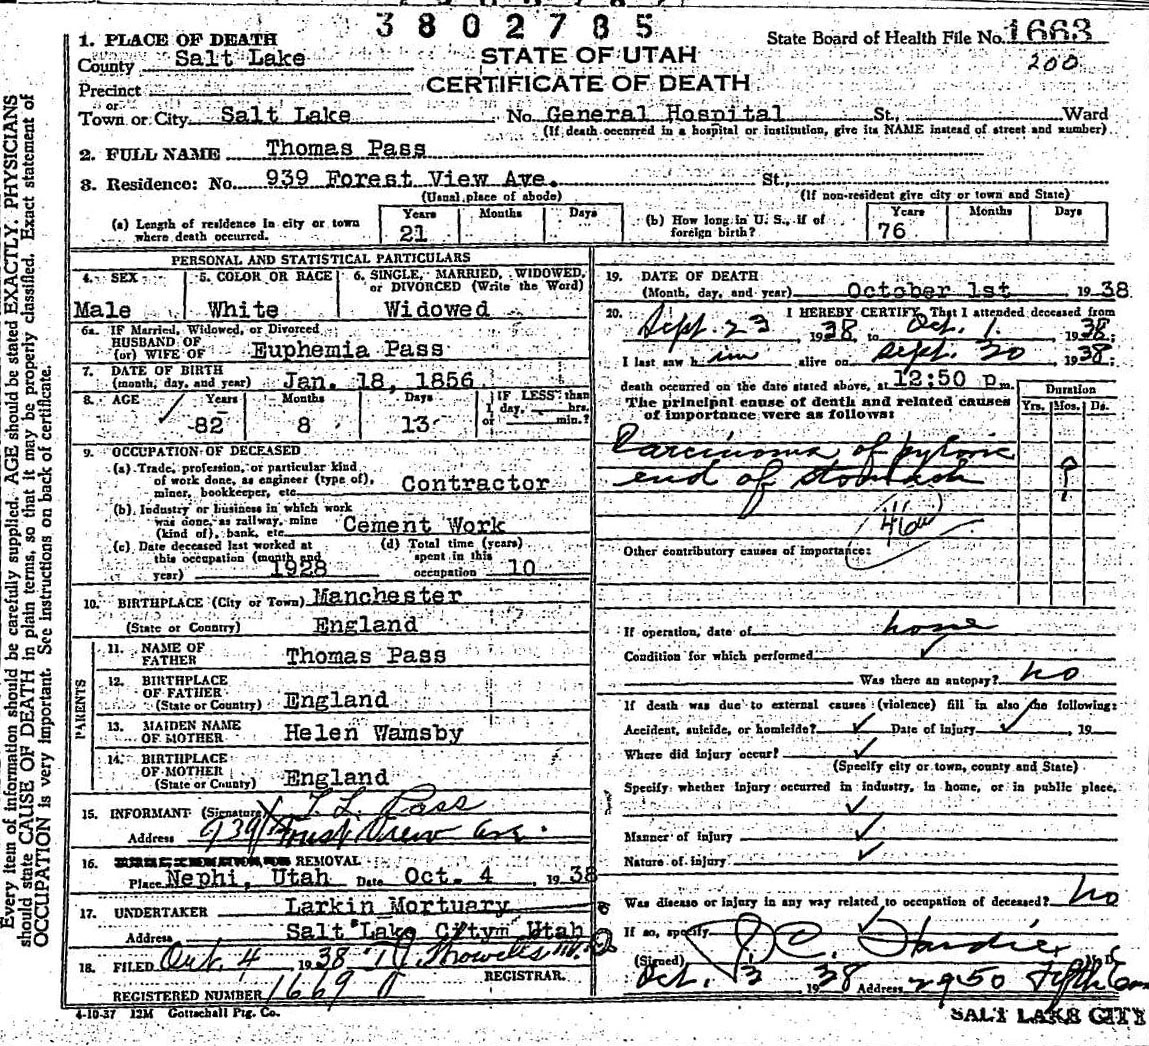 3802785
1. PLACE OF DEATH
County Salt Lake
STATE OF UTAH
State Board of Health File No. 1663
200
Precinct
CERTIFICATE OF DEATH
or
Town or City Salt Lake No. General Hospital St., Ward
(If death occurred in a hospital or institution, give its NAME instead of street and number)
2. FULL NAME Thomas Pass
3. Residence: No. 939 Forest View Ave. St.,
(Usual place of abode) (If non-resident give city or town and State)
(a) Length of residence in city or town where death occurred. Years 21 Months Days
(b) How long in U. S., if of foreign birth? Years 76 Months Days
PERSONAL AND STATISTICAL PARTICULARS
4. SEX Male
5. COLOR OR RACE White
6. SINGLE, MARRIED, WIDOWED, or DIVORCED (Write the Word) Widowed
6a. IF Married, Widowed, or Divorced
HUSBAND OF
(or) WIFE OF Euphemia Pass
7. DATE OF BIRTH
(month, day, and year) Jan. 18, 1856
8. AGE Years 82 Months 8 Days 13 IF LESS than 1 day, hrs. or min.?
9. OCCUPATION OF DECEASED
(a) Trade, profession, or particular kind
of work done, as engineer (type of),
miner, bookkeeper, etc. Contractor
(b) Industry or business in which work
was done, as railway, mine
(kind of), bank, etc. Cement Work
(c) Date deceased last worked at
this occupation (month and
year) 1928
(d) Total time (years)
spent in this
occupation 10
10. BIRTHPLACE (City or Town) Manchester
(State or Country) England
PARENTS
11. NAME OF
FATHER Thomas Pass
12. BIRTHPLACE
OF FATHER
(State or Country) England
13. MAIDEN NAME
OF MOTHER Helen Wamsby
14. BIRTHPLACE
OF MOTHER
(State or County) England
15. INFORMANT (Signature) Pass
Address 939 View Ave.
16. REMOVAL
Place Nephi, Utah Date Oct. 4, 1938
17. UNDERTAKER Larkin Mortuary
Address Salt Lake City Utah
18. FILED Oct. 4 1938
REGISTRAR.
REGISTERED NUMBER 1669
4-10-37 12M Gottschall Ptg. Co.
19. DATE OF DEATH
(Month, day, and year) October 1st 1938
20. I HEREBY CERTIFY, That I attended deceased from
Sept. 23, 1938, to Oct. 1. 1938;
I last saw him alive on Sept. 30, 1938;
death occurred on the date stated above, at 12:50 p.m.
The principal cause of death and related causes
of importance were as follows:
Duration
Yrs. Mos. Ds.
Carcinoma of pyloric
end of stomach ?
Other contributory causes of importance:
If operation, date of none
Condition for which performed
Was there an autopsy? no
If death was due to external causes (violence) fill in also the following:
Accident, suicide, or homicide? Date of injury , 19
Where did injury occur?
(Specify city or town, county and State)
Specify whether injury occurred in industry, in home, or in public place.
Manner of injury
Nature of injury
Was disease or injury in any way related to occupation of deceased? no
If so, specify
(Signed) J. C. M. D.
Oct. 3 1938 Address
SALT LAKE CITY
Every item of information should be carefully supplied. AGE should be stated EXACTLY. PHYSICIANS
should state CAUSE OF DEATH in plain terms, so that it may be properly classified. Exact statement of
OCCUPATION is very important. See instructions on back of certificate.